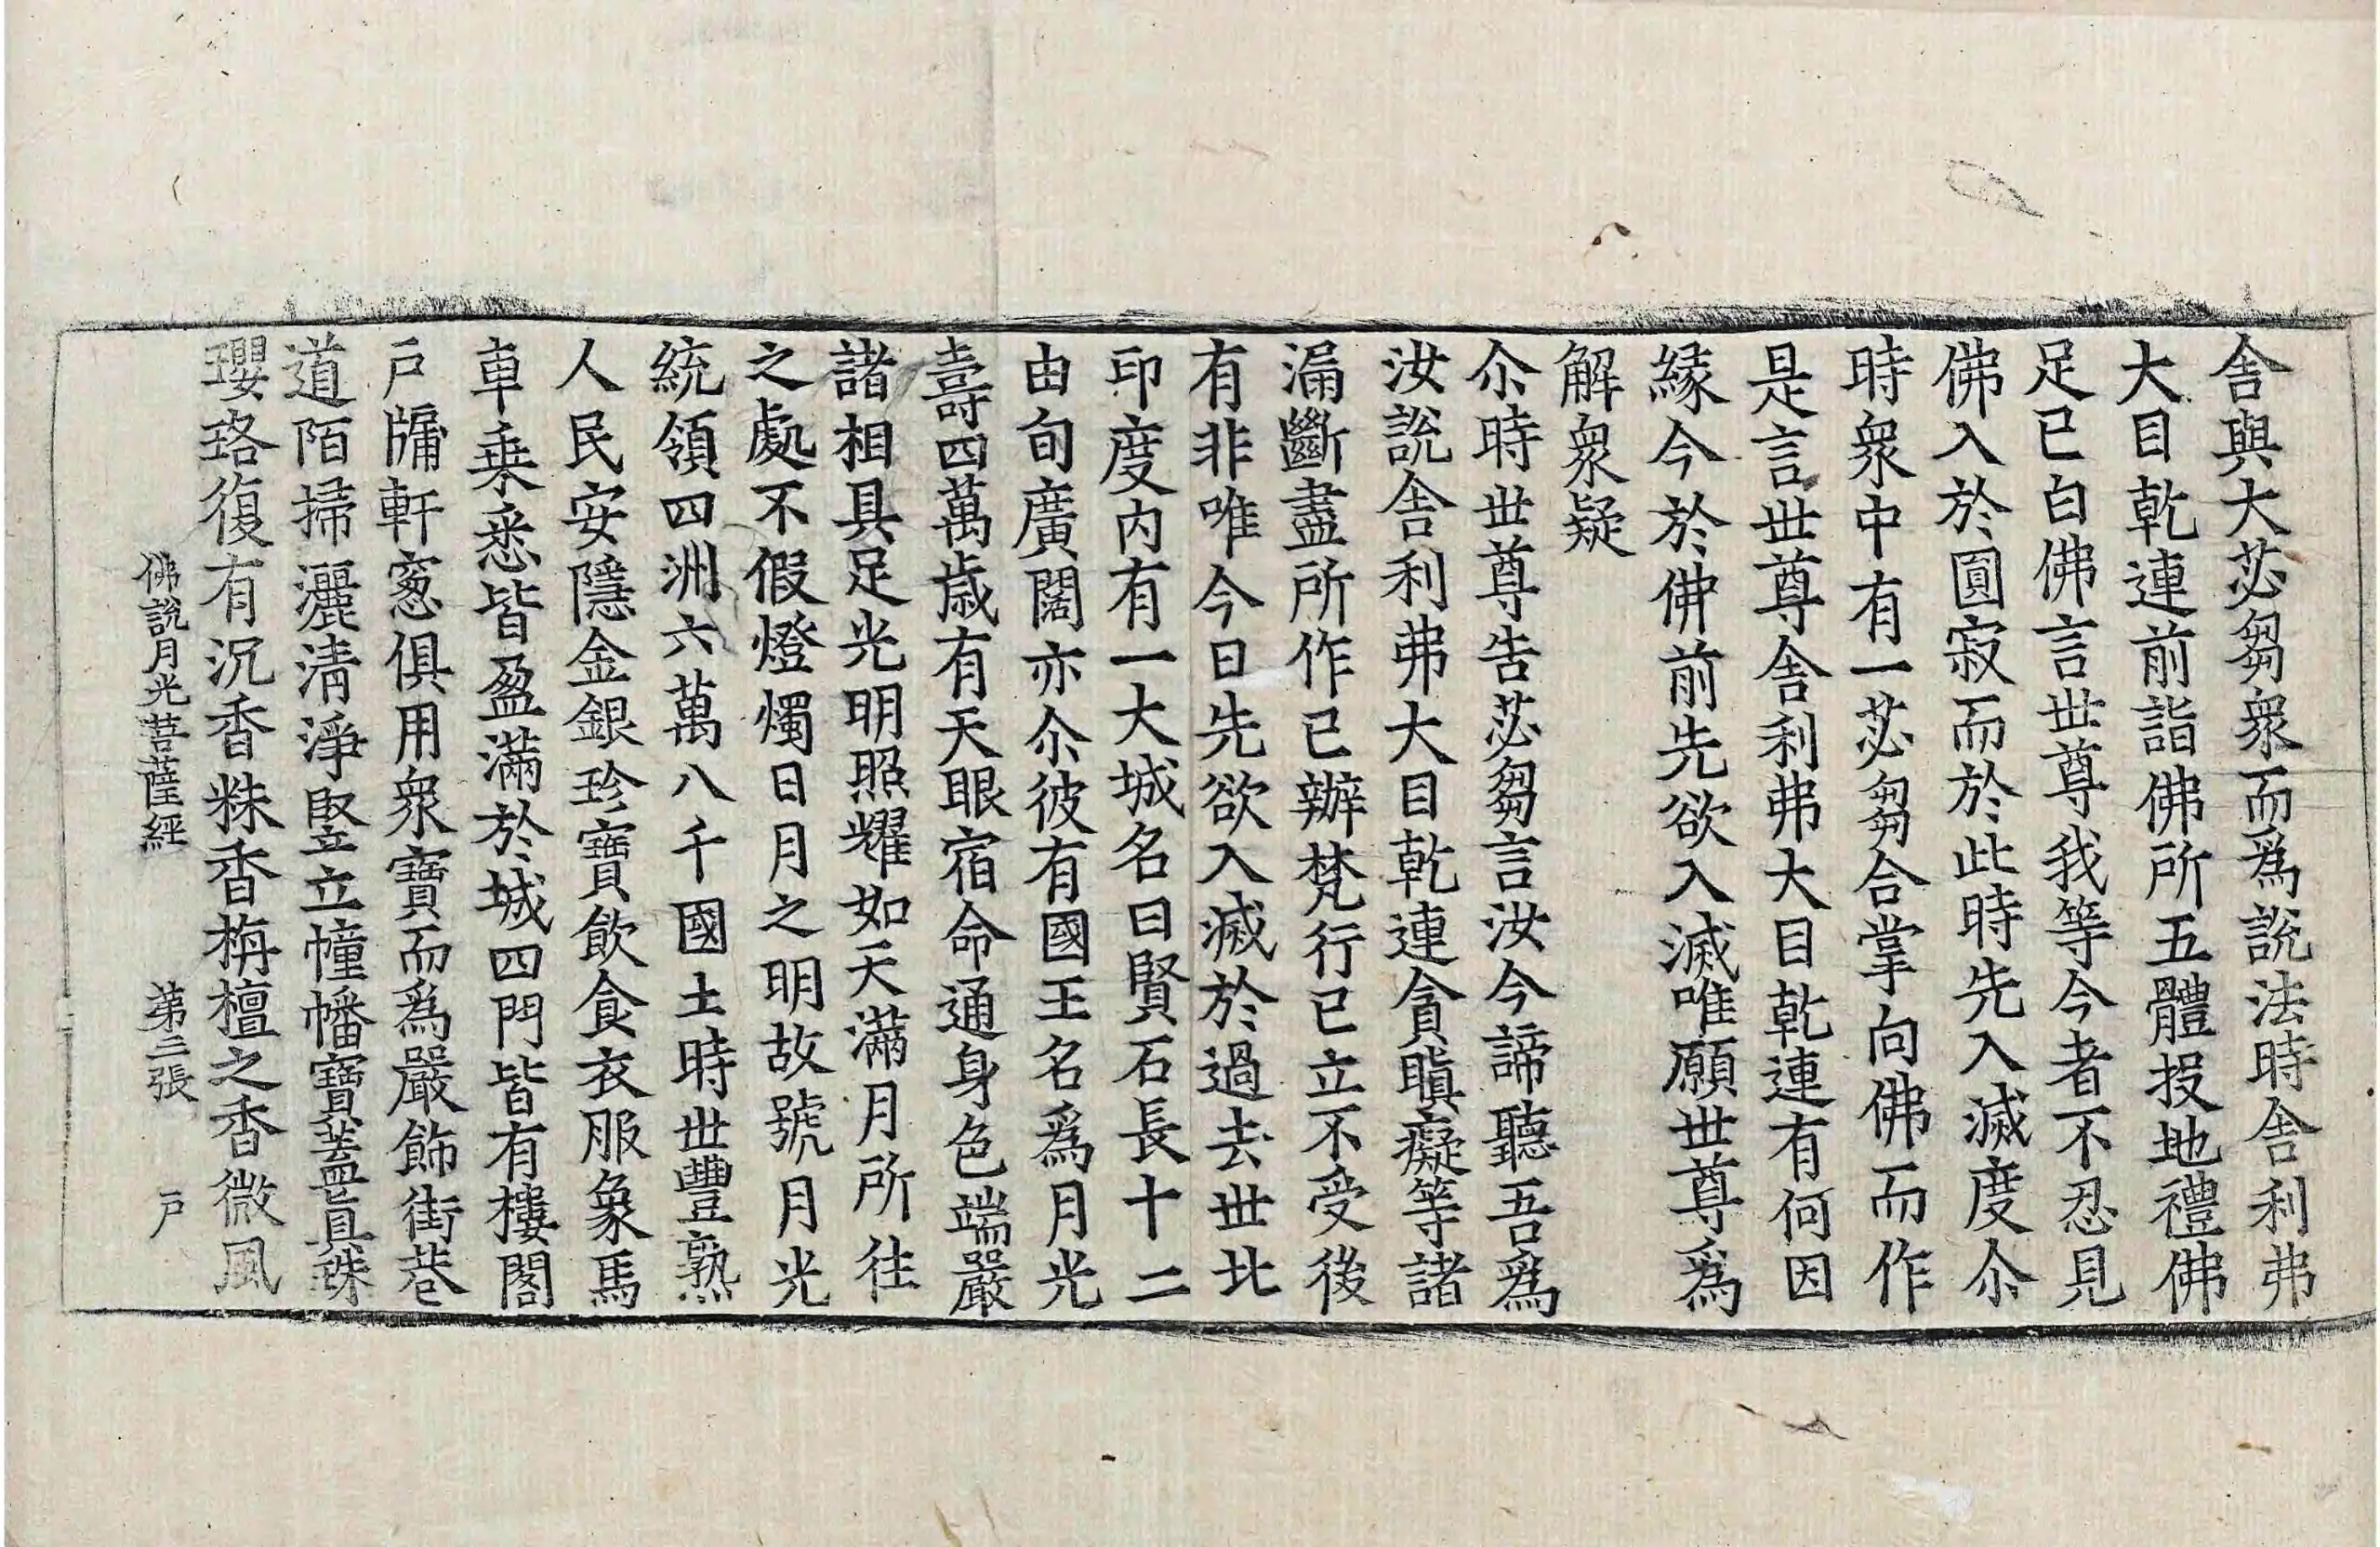 舎與大苾芻衆而爲說法時舎利弗
大目乾連前詣佛所五體投地禮佛
足已白佛言世尊我等今者不忍見
佛入於圓寂而於此時先入滅度尒
時衆中有一苾芻合掌向佛而作
是言世尊舎利弗大目乾連有何因
緣今於佛前先欲入滅唯願世尊爲
解衆疑
尒時世尊告苾芻言汝今諦聽吾爲
汝說舎利弗大目乾連貪瞋癡等諸
漏斷盡所作已辦梵行已立不受後
有非唯今日先欲入滅於過去世北
印度内有一大城名曰賢石長十二
由旬廣闊亦尒彼有國王名爲月光
壽四萬歳有天眼宿命通身色端嚴
諸相具足光明照耀如天滿月所往
之處不假燈燭日月之明故號月光
統領四洲六萬八千國土時世豐熟
人民安隱金銀珍寶飲食衣服象馬
車乗悉皆盈滿於城四門皆有樓閣
戸牖軒窓俱用衆寶而爲嚴飾街巷
道陌掃灑清淨竪立幢幡寶蓋真珠
瓔珞復有沉香粖香栴檀之香微風
佛說月光菩薩經 第二張 戸